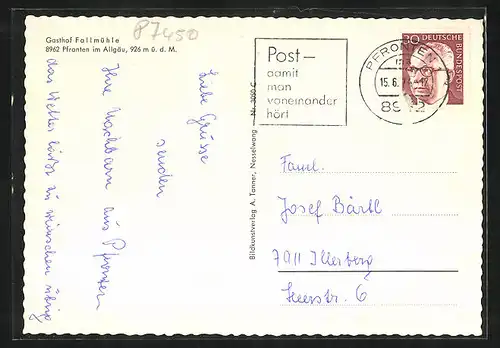 87450
Gasthof Fallmühle
8962 Pfronten im Allgäu, 926 m ü. d. M.
Liebe Grüsse
senden
Ihre Nachbarn aus Pfronten
das Wetter läßt zu wünschen übrig
Bildkunstverlag A. Tanner, Nesselwang Nr. 3090 C
Post–
damit
man
voneinander
hört
PFRONTEN
15.6.
30 DEUTSCHE
BUNDESPOST
Faml.
Josef Bärtl
7911 Illerberg
6